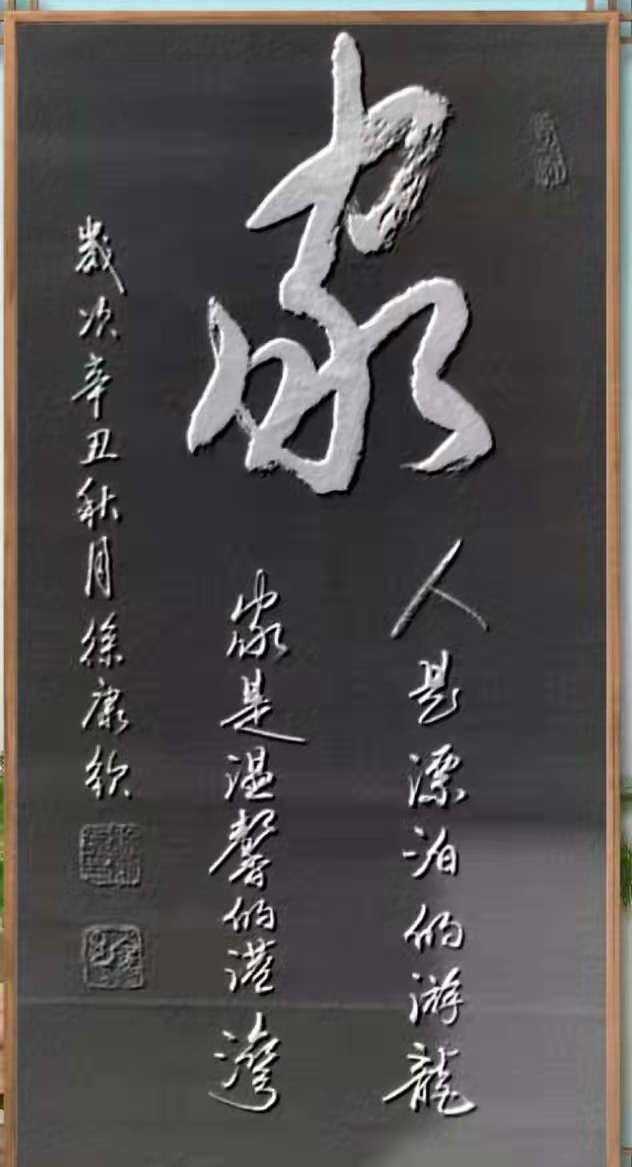 家
人是漂泊的游龍
家是温馨的港灣
歲次辛丑秋月徐康欽